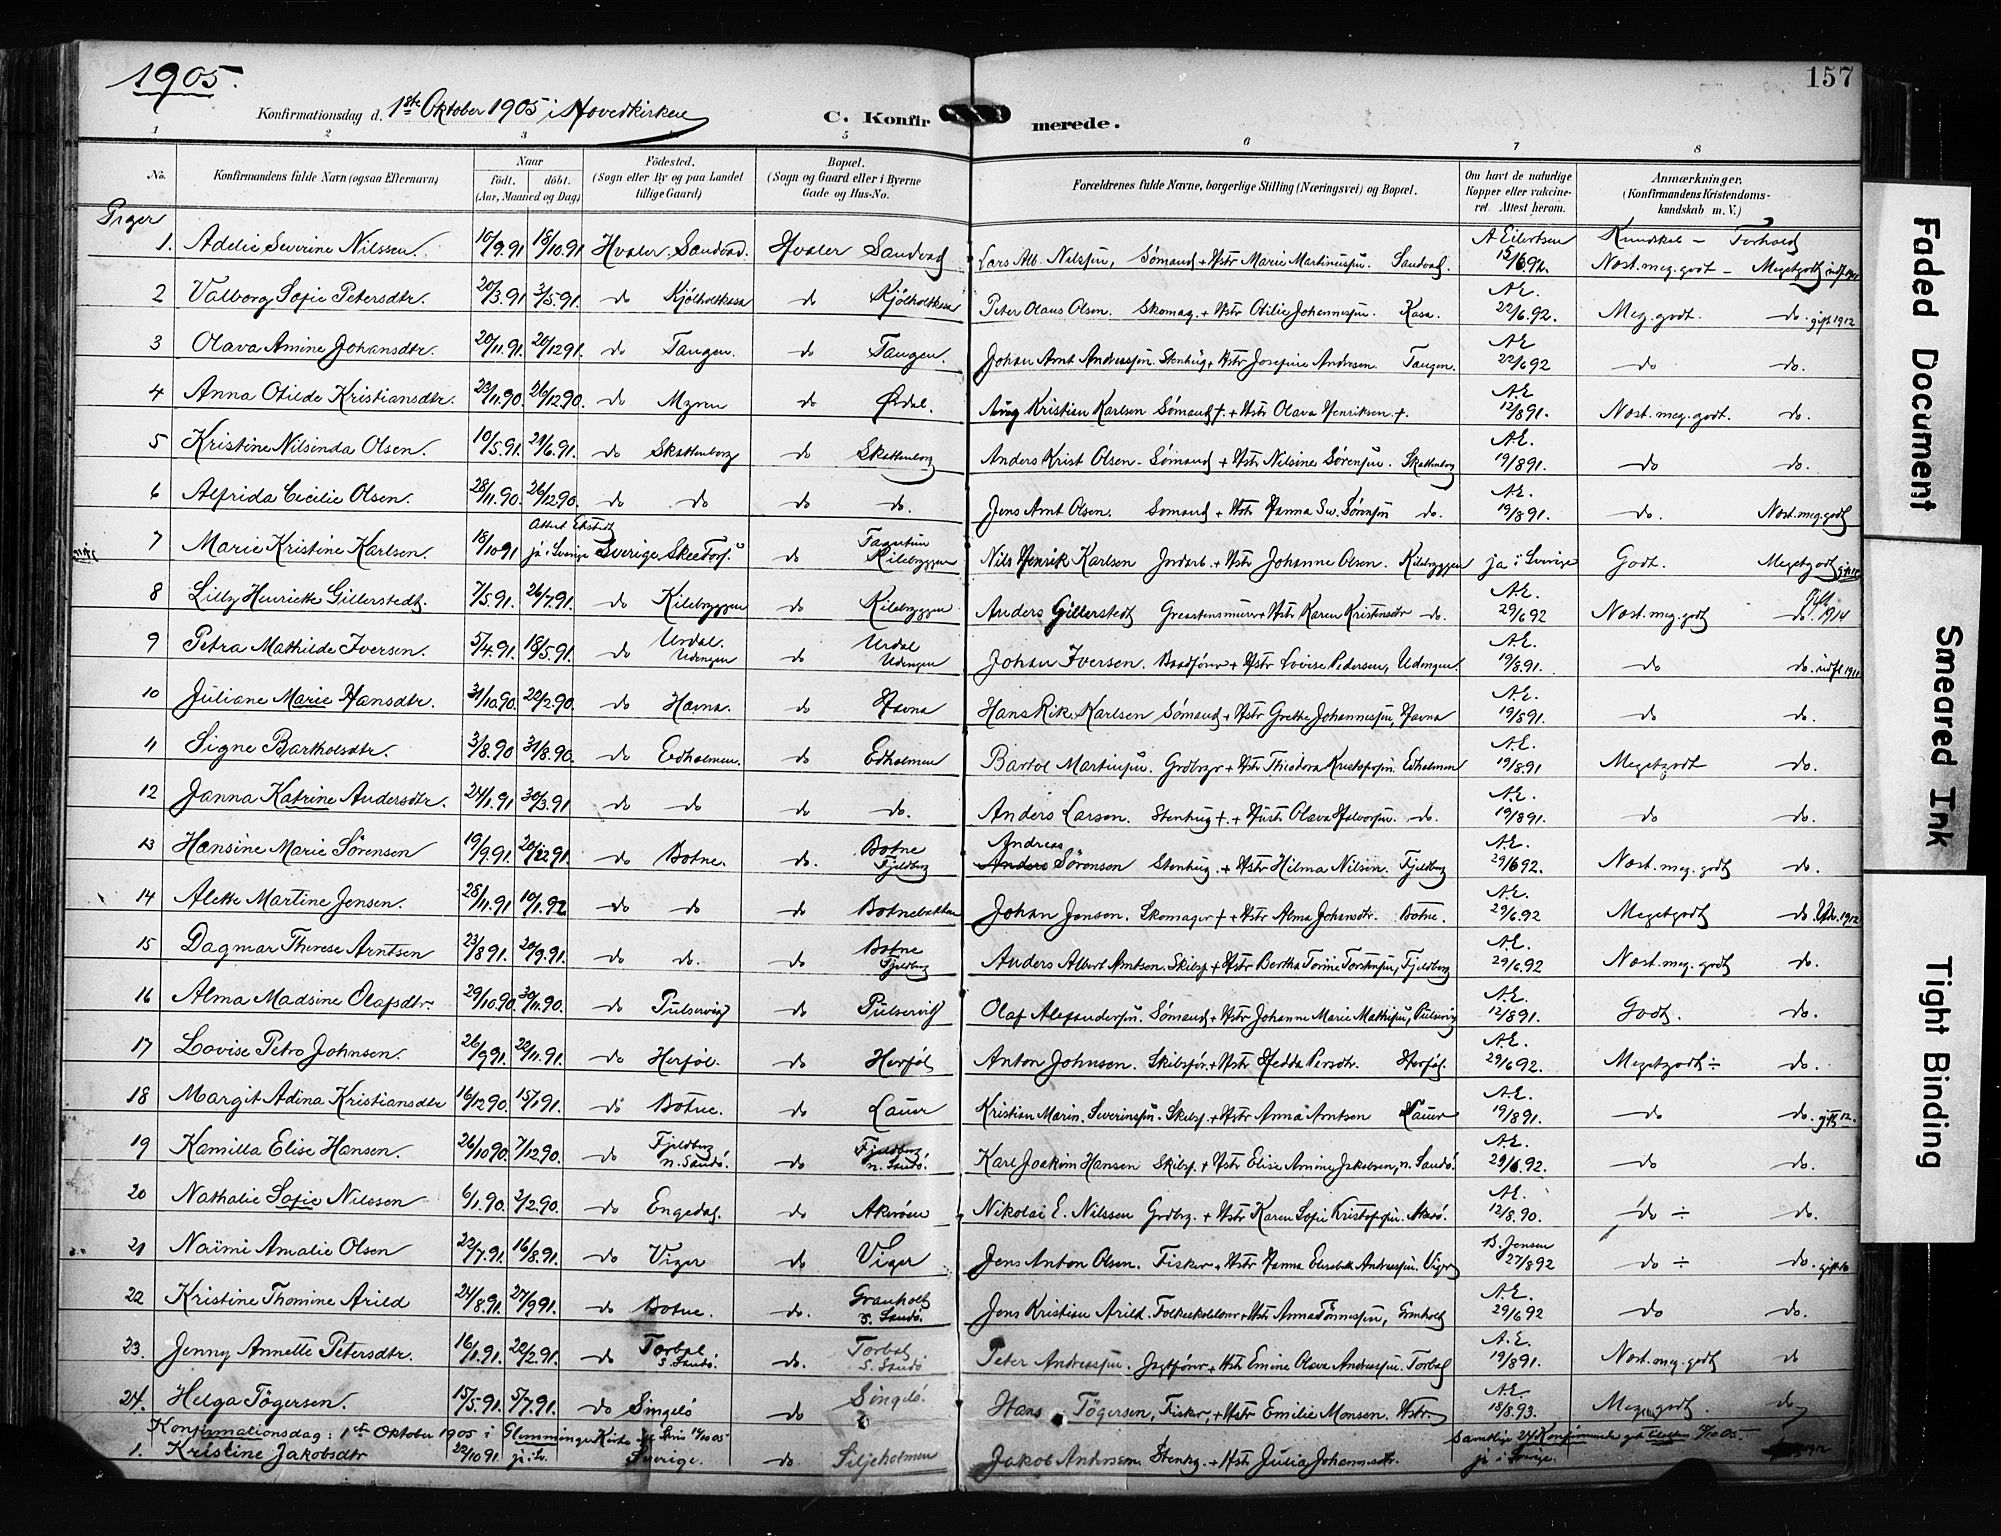 1905.
157
Konfirmationsdag d. 1ste Oktober 1905 i Hovedkirken
C. Konfirmerede.
1 2 3 4 5 6 7 8
No. Konfirmandens fulde Navn (ogsaa Efternavn) Naar födt. döbt. (Aar, Maaned og Dag) Födested. (Sogn eller By og paa Landet tillige Gaard) Bopæl. (Sogn og Gaard eller i Byerne Gade og Hus-No. Forældrenes fulde Navne, borgerlige Stilling (Næringsvei) og Bopæl. Om havt de naturlige Kopper eller vakcineret. Attest herom. Anmærkninger. (Konfirmandens Kristendomskundskab m. V.)
Piger
Kundskab – Forhold
1. Adelie Severine Nilssen. 10/9.91 18/10.91 Hvaler Sandvad. Hvaler Sandvad Lars Alb. Nilsssen, Sømand + Hstr Marie Martinusen. Sandvad. A Eilertsen 13/6.92. Nost. meg. godt – Megetgodt
2 Valborg Sofie Petersdtr. 20/3.91 3/5.91. do Kjølholtkasa do Kjølholtkasa Peter Olaus Olsen. Skomag. + Hstr Otilie Johannesen. Kasa. A.E. 22/6.92. Meg. godt. do. gift 1912
3 Olava Amine Johansdtr. 20/11.91. 20/12 91. do Tangen. do Tangen. Johan Arnt Andreassen. Stenhug. + Hstr Josefine Andresen. Tangen. A.E. 22/6 92 do do.
4 Anna Otilde Kristiansdtr. 23/11.90. 26/12 90. do Myren do Ødal. Aug Kristian Karlsen Sømand †. + Hstr Olava Henriksen †. A.E. 12/8 91. Nost. meg. godt. do.
5 Kristine Nilsinda Olsen. 10/5.91. 21/6.91. do Skattenborg do Skattenborg Anders Krist Olsen. Sømand + Hstr Nilsine Sørensen. Skattenborg A.E. 19/8 91. do do.
6 Alfrida Cecilie Olsen. 28/11.90. 26/12 90. do do do do. Jens Arnt Olsen. Sømand + Hstr Hanna Sev. Sørensen do. A.E. 19/8 91. do. Nost. meg. godt
7 Marie Kristine Karlsen. 18/10 91 ja i Sverige Sverige Skee do Kilebryggen Nils Henrik Karlsen Jordarb. + Hstr Johanne Olsen. Kilebryggen ja i Sverige Godt. Megetgodt
8 Lilly Henriette Gillerstedt. 7/5.91. 26/7.91. do Kilebryggen do Kilebryggen Anders Gillerstedt + Hstr Karen Kristensdtr do. A.E. 29/6 92 Nost. meg. godt do gift 1914
9 Petra Mathilde Iversen. 5/4.91. 18/5.91. do Urdal. Udengen do Urdal Udengen Johan Iversen. Baadfører + Hstr Lovise Pedersen, Udengen. A.E. 19/8 91. do do. indfl 1911
10 Juliane Marie Hansdtr. 31/10.90. 22/2.90. do Havna. do Havna Hans Rik. Karlsen Sømand + Hstr Grethe Johannesen, Havna A.E. 19/8 91. do do.
11 Signe Bartholsdtr. 3/8.90 31/8.90. do Edholmen. do Edholmen Bartol Martinsen. Grdbrgr + Hstr Theodora Kristofersen. Edholmen A.E. 19/8.91 Megetgodt do.
12 Janna Katrine Andersdtr. 24/1.91 30/3.91 do do do do. Anders Larsen. Stenhug †. + Hustr Olava Halvorsen. do. A.E. 19/8 91. do do
13 Hansine Marie Sørensen 19/9.91. 20/12 91. do Botne. do. Botne Fjeldberg Andreas Anders Sørensen Stenhug. + Hstr Hilma Nilsen. Fjeldberg A.E. 29/6 92. Nost. meg. godt do.
14 Alette Martine Jensen. 28/11.91 10/1.92 do do do Botnebakken Johan Jensen. Skomager † + Hstr Alma Johansdtr. Botne. A.E. 29/6.92 Megetgodt do. 1912
15 Dagmar Therese Arntsen 23/8 91. 20/9.91. do do. do Botne Fjeldberg Anders Albert Arntsen. Skibsf. + Hstr Bertha Torine Torstensen, Fjeldberg A.E. 29/6.92 Nost. meg. godt do.
16 Alma Madsine Olafsdtr. 29/10.90. 30/11.90. do Pulservig do Pulservig Olaf Alexandersen. Sømand + Hstr Johanne Marie Mathisen, Pulservig A.E. 12/8 91. Godt. do.
17 Lovise Petro Johnsen. 26/9 91. 22/11.91. do Herføl. do Herføl Anton Johnsen. Skibsfør. + Hstr Hedda Persdtr. Herføl. A.E. 29/6 92. Megetgodt ÷ do.
18 Margit Adina Kristiansdtr 16/12 90. 15/1 91. do Botne. do Lauer Kristian Marin. Severinsen. Skibsf. + Hstr Anna Arntsen Lauer A.E. 19/8 91. do do. gift 12.
19 Kamilla Elise Hansen. 26/10 90. 7/12 90. do Fjeldberg n. Sandö. do Fjeldberg n. Sandö. Karl Joakim Hansen Skibsf. + Hstr Elise Amine Jakobsen, n. Sandö. A.E. 29/6 92. do do.
20 Nathalie Sofie Nilssen 6/1.90. 2/2.90. do Engedal. do Akerøen Nikolai E. Nilssen Grdbrg. + Hstr Karen Sofie Kristofersen. Akerö. A.E. 12/8.90. do ÷ do.
21 Naümi Amalie Olsen 22/7.91. 16/8 91. do Viger do Viger Jens Anton Olsen. Fisker + Hstr Hanna Elisabeth Andreasen. Viger B. Jensen 27/8 92 do ÷ do.
22 Kristine Thomine Arild 24/8.91. 27/9 91. do Botne. do. Granholt s. Sandö. Jens Kristian Arild. Folkeskolelærer + Hstr Anna Tönnesen, Grnholt A.E. 29/6 92 do do.
23. Jenny Annette Petersdtr. 16/1.91. 22/2.91. do Torbal s. Sandö. do. Torbal s. Sandö Peter Andreassen. Jagtförer + Hstr Emine Olava Andreassen. Torbal A.E. 19/8 91. Nost. meg. godt do
24. Helga Tögersen. 15/5.91. 5/7.91. do Singelö do Singelö. Hans Tögersen, Fisker, + Hstr Emilie Monsen. Hstr A.E. 18/8.93. Meg. godt. do
Konfirmationsdag: 1ste Oktober 1905 i Glemminge Kirke
Samtlige 24 Konfirmande
1. Kristine Jakobsdtr 22/10 91. ja i Sv. Sverige. do Siljeholmen Jakob Andersen. Stenhg. + Hstr Julia Johannesdtr. ja i Sverige.
Faded Document
Smeared Ink
Tight Binding